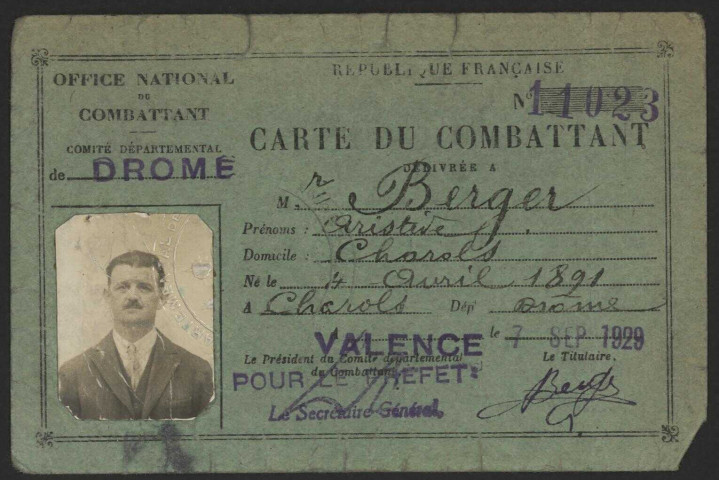 OFFICE NATIONAL
DU
COMBATTANT
COMITÉ DÉPARTEMENTAL
de DROME
RÉPUBLIQUE FRANÇAISE
N° 11023
CARTE DU COMBATTANT
DÉLIVRÉE A
Mr Berger
Prénoms : Aristide
Domicile : Charols
Né le 4 Avril 1891
A Charols Dépt Drôme
VALENCE le 7 SEP 1929
Le Président du Comité départemental
du Combattant,
Le Titulaire,
POUR LE PREFET:
Le Secrétaire Général,
Berger